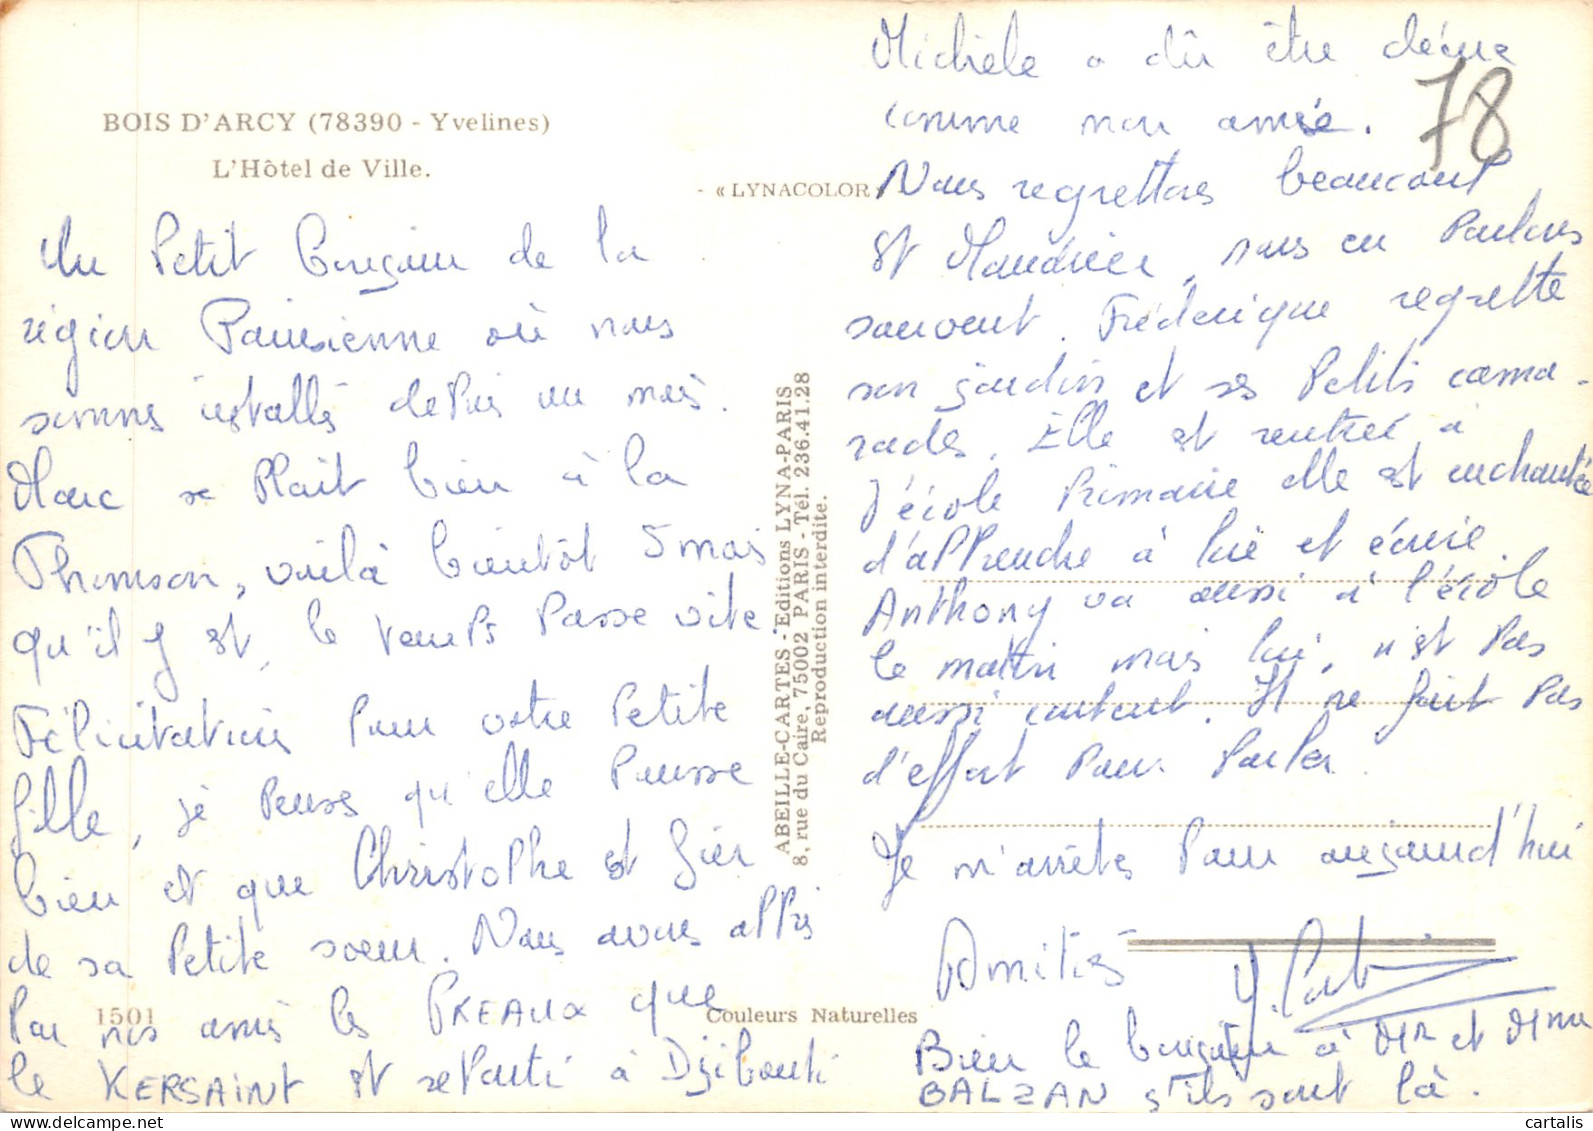 BOIS D'ARCY (78390 - Yvelines)
L'Hôtel de Ville.
- « LYNACOLOR »
Un Petit bonjour de la
région Parisienne où nous
sommes installés depuis un mois.
Marc se plait bien à la
Thomson, voilà bientôt 5 mois
qu'il y est, le temps passe vite
Félicitations pour votre petite
fille, je pense qu'elle pousse
bien et que Christophe est fier
de sa petite soeur. Nous avons appris
par nos amis les PREAUX que
le KERSAINT est reparti à Djibouti
1501
Couleurs Naturelles
ABEILLE-CARTES - Editions LYNA-PARIS
8, rue du Caire, 75002 PARIS - Tél. 236.41.28
Reproduction interdite.
Michèle a dû être déçue
comme mon amie.
78
Nous regrettons beaucoup
St Mandrier, nous en parlons
souvent. Frédérique regrette
son jardin et ses petits cama-
rades. Elle est rentrée à
l'école primaire elle est enchantée
d'apprendre à lire et écrire.
Anthony va aussi à l'école
le matin mais lui, n'est pas
aussi content. Il ne fait pas
d'effort pour parler.
Je m'arrête pour aujourd'hui
Amitiés
Bien le bonjour à Mr et Mme
BALZAN s'ils sont là.
cartalis